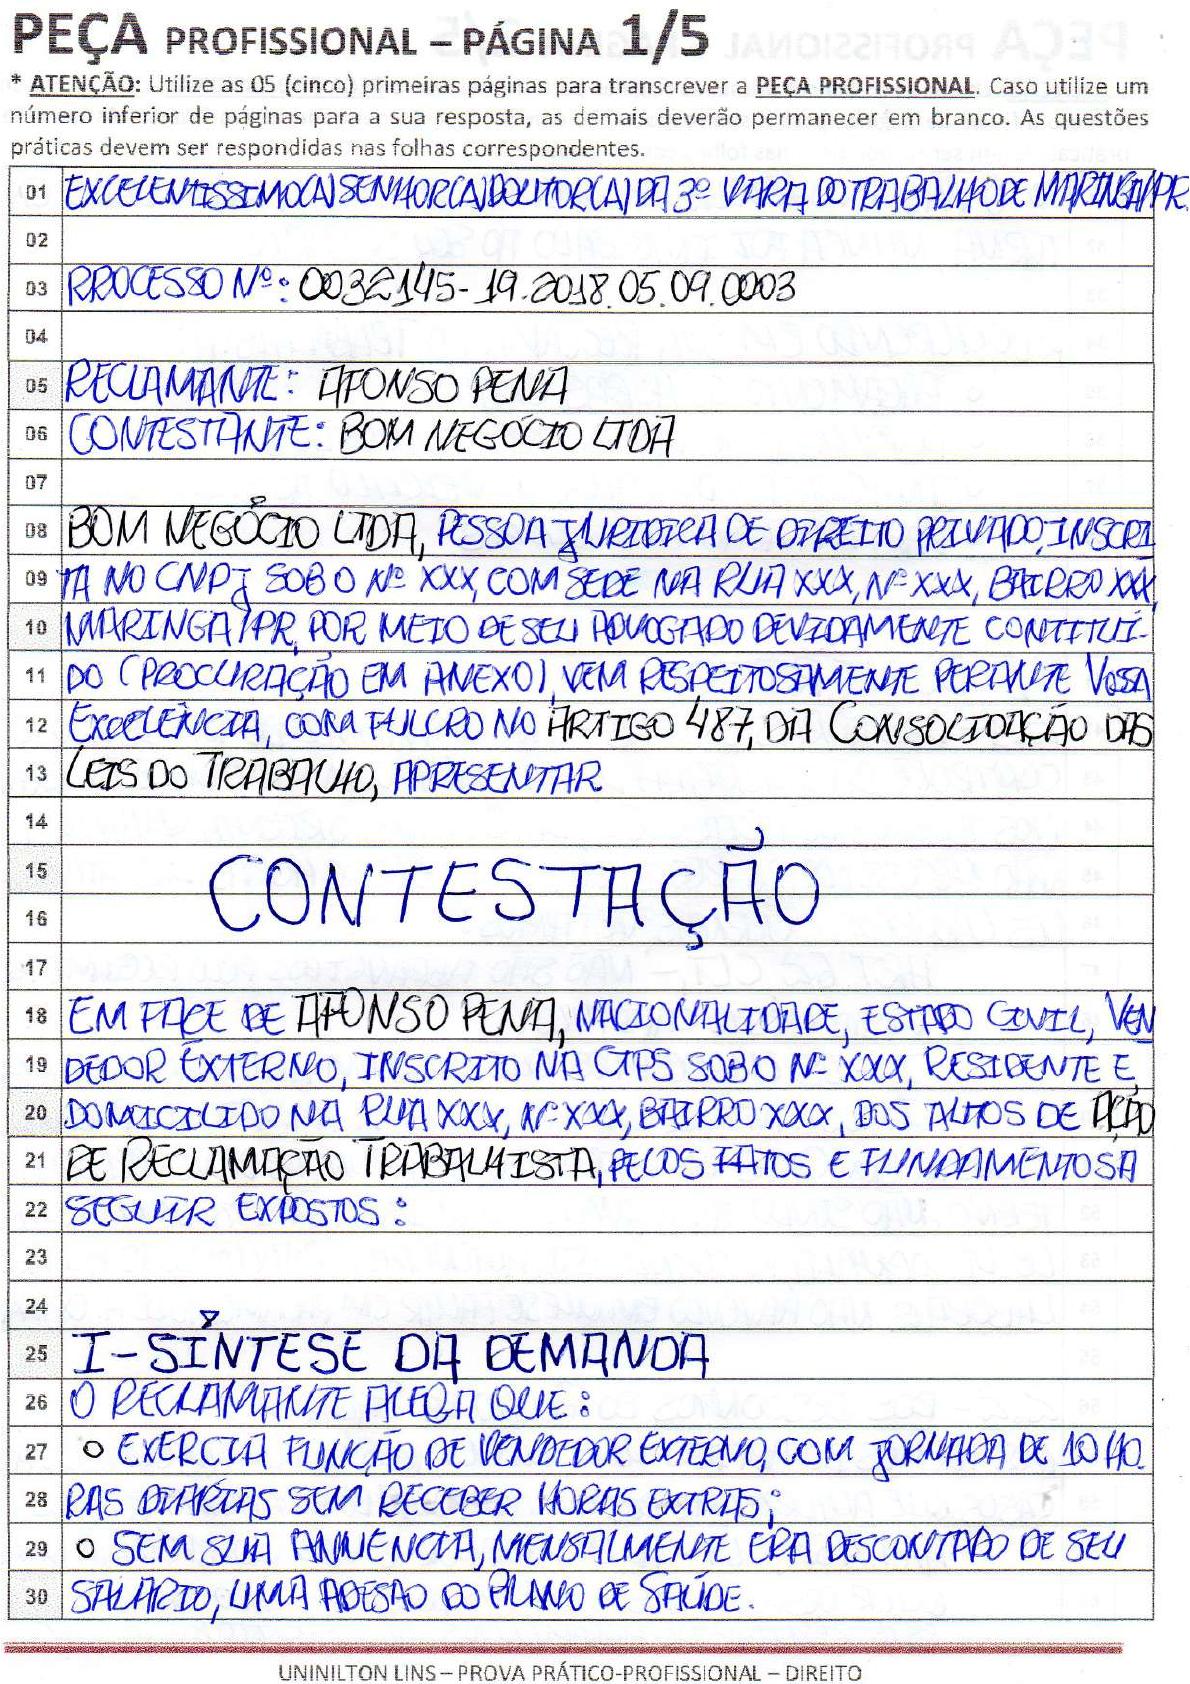 PEÇA PROFISSIONAL – PÁGINA 1/5
* ATENÇÃO: Utilize as 05 (cinco) primeiras páginas para transcrever a PEÇA PROFISSIONAL. Caso utilize um
número inferior de páginas para a sua resposta, as demais deverão permanecer em branco. As questões
práticas devem ser respondidas nas folhas correspondentes.
01 EXCELENTISSIMO(A) SENHOR(A) DOUTOR(A) DA 3ª VARA DO TRABALHO DE MARINGA/PR
02
03 PROCESSO Nº: 0032145-19.2018.05.09.0003
04
05 RECLAMANTE: AFONSO PENA
06 CONTESTANTE: BOM NEGÓCIO LTDA
07
08 BOM NEGÓCIO LTDA, PESSOA JURIDICA DE DIREITO PRIVADO, INSCRI
09 TA NO CNPJ SOB O Nº XXX, COM SEDE NA RUA XXX, Nº XXX, BAIRRO XXX,
10 MARINGA/PR, POR MEIO DE SEU ADVOGADO DEVIDAMENTE CONTITUÍ-
11 DO (PROCURAÇÃO EM ANEXO), VEM RESPEITOSAMENTE PERANTE VOSSA
12 EXCELÊNCIA, COM FULCRO NO ARTIGO 487, DA CONSOLIDAÇÃO DAS
13 LEIS DO TRABALHO, APRESENTAR
14
15 CONTESTAÇÃO
16
17
18 EM FACE DE AFONSO PENA, NACIONALIDADE, ESTADO CIVIL, VEN
19 DEDOR EXTERNO, INSCRITO NA CTPS SOB O Nº XXX, RESIDENTE E
20 DOMICILIDO NA RUA XXX, Nº XXX, BAIRRO XXX, DOS AUTOS DE AÇÃO
21 DE RECLAMAÇÃO TRABALHISTA, PELOS FATOS E FUNDAMENTOS A
22 SEGUIR EXPOSTOS:
23
24
25 I - SÍNTESE DA DEMANDA
26 O RECLAMANTE ALEGA QUE:
27 O EXERCIA FUNÇÃO DE VENDEDOR EXTERNO, COM JORNADA DE 10 HO.
28 RAS DIÁRIAS SEM RECEBER HORAS EXTRAS;
29 O SEM SUA ANUENCIA, MENSALMENTE ERA DESCONTADO DE SEU
30 SALÁRIO, UMA ADESÃO DO PLANO DE SAÚDE.
UNINILTON LINS – PROVA PRÁTICO-PROFISSIONAL – DIREITO